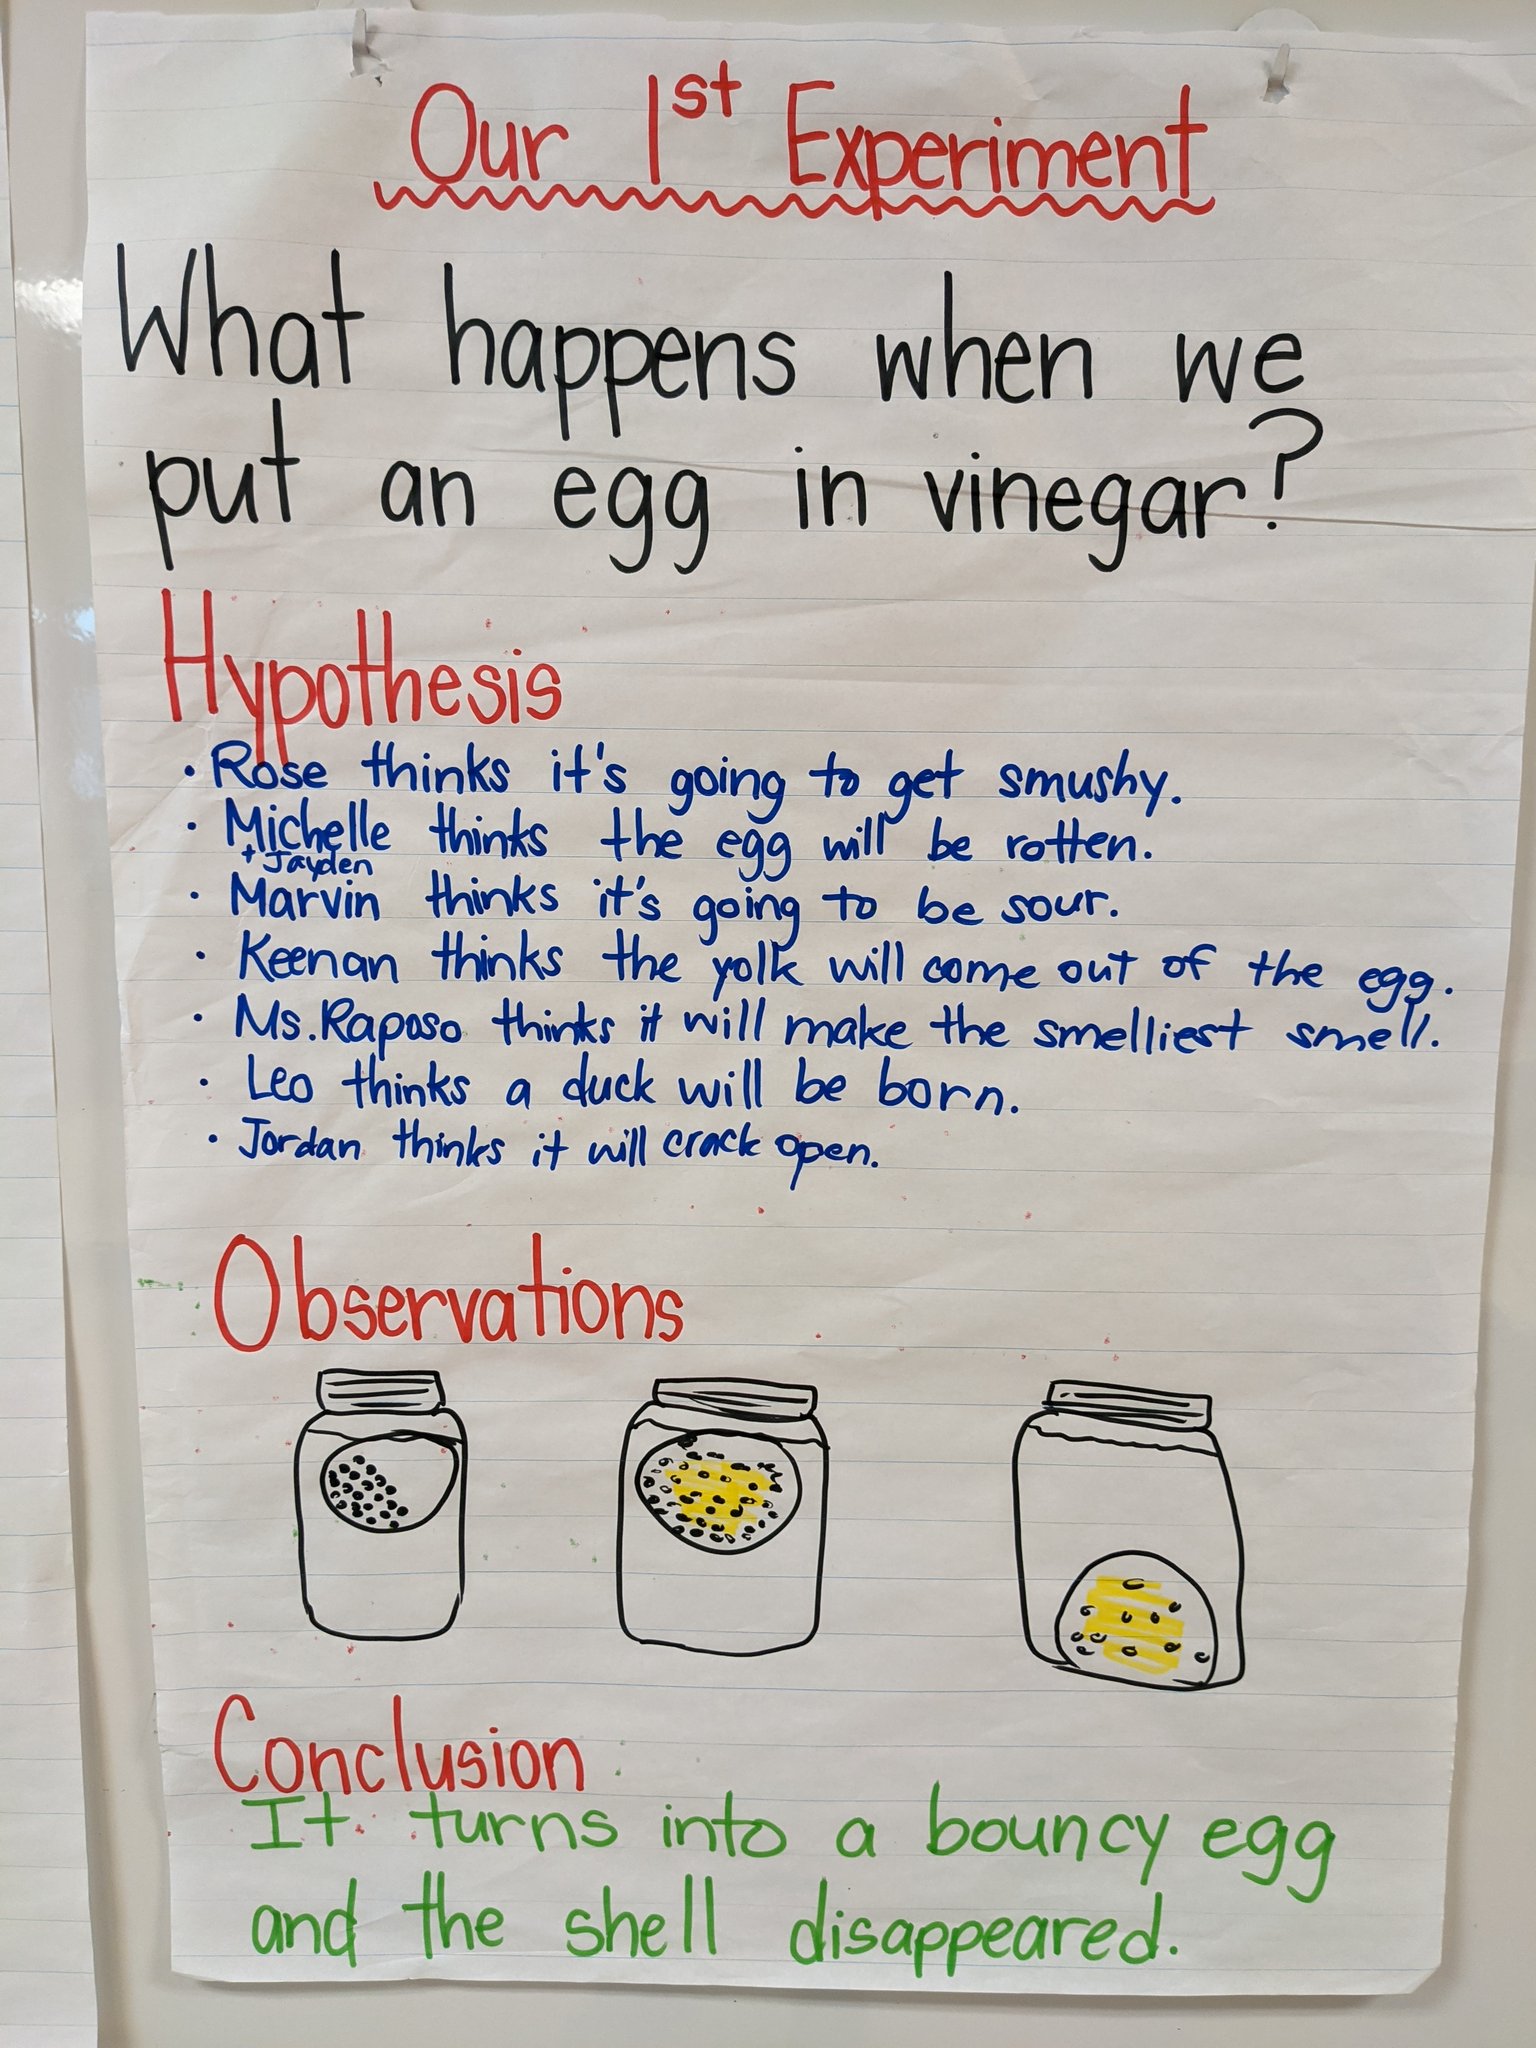 Our 1st Experiment
What happens when we
put an egg in vinegar?
Hypothesis
• Rose thinks it's going to get smushy.
• Michelle thinks the egg will be rotten.
+ Jayden
• Marvin thinks it's going to be sour.
• Keenan thinks the yolk will come out of the egg.
• Ms. Raposo thinks it will make the smelliest smell.
• Leo thinks a duck will be born.
• Jordan thinks it will crack open.
Observations
Conclusion
It turns into a bouncy egg
and the shell disappeared.